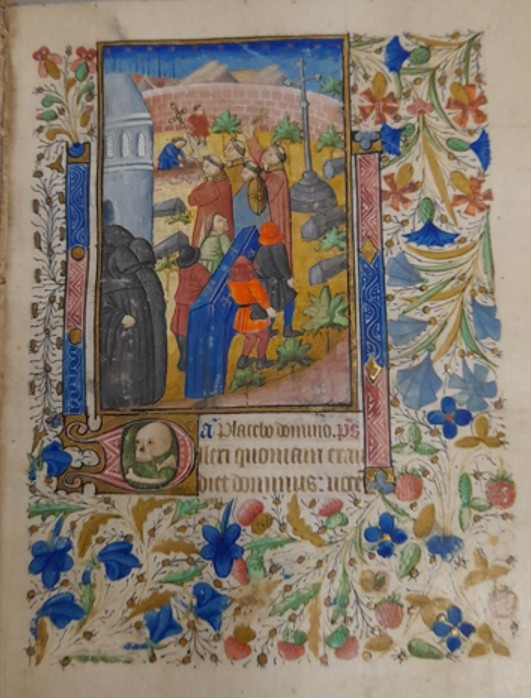 a Placebo domino. ps
Dilexi quoniam exau
diet dominus: uoce